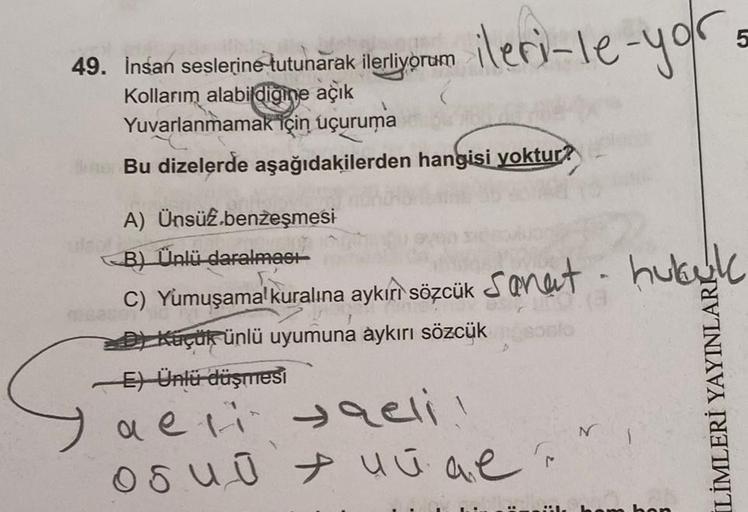 49. İnsan seslerine tutunarak ilerliyorum ileri-le-yor 5
Kollarım alabildiğine açık
Yuvarlanmamak için uçuruma
Bu dizelerde aşağıdakilerden hangisi yoktur?
A) Ünsüz benzeşmesi
B) Ünlü daralması
C) Yumuşama kuralına aykırı sözcük sanat - hukuk
D) Küçük ünlü uyumuna aykırı sözcük
E) Ünlü düşmesi
aeıi → aeıi
oöuü → uüae
LİMLERİ YAYINLARI